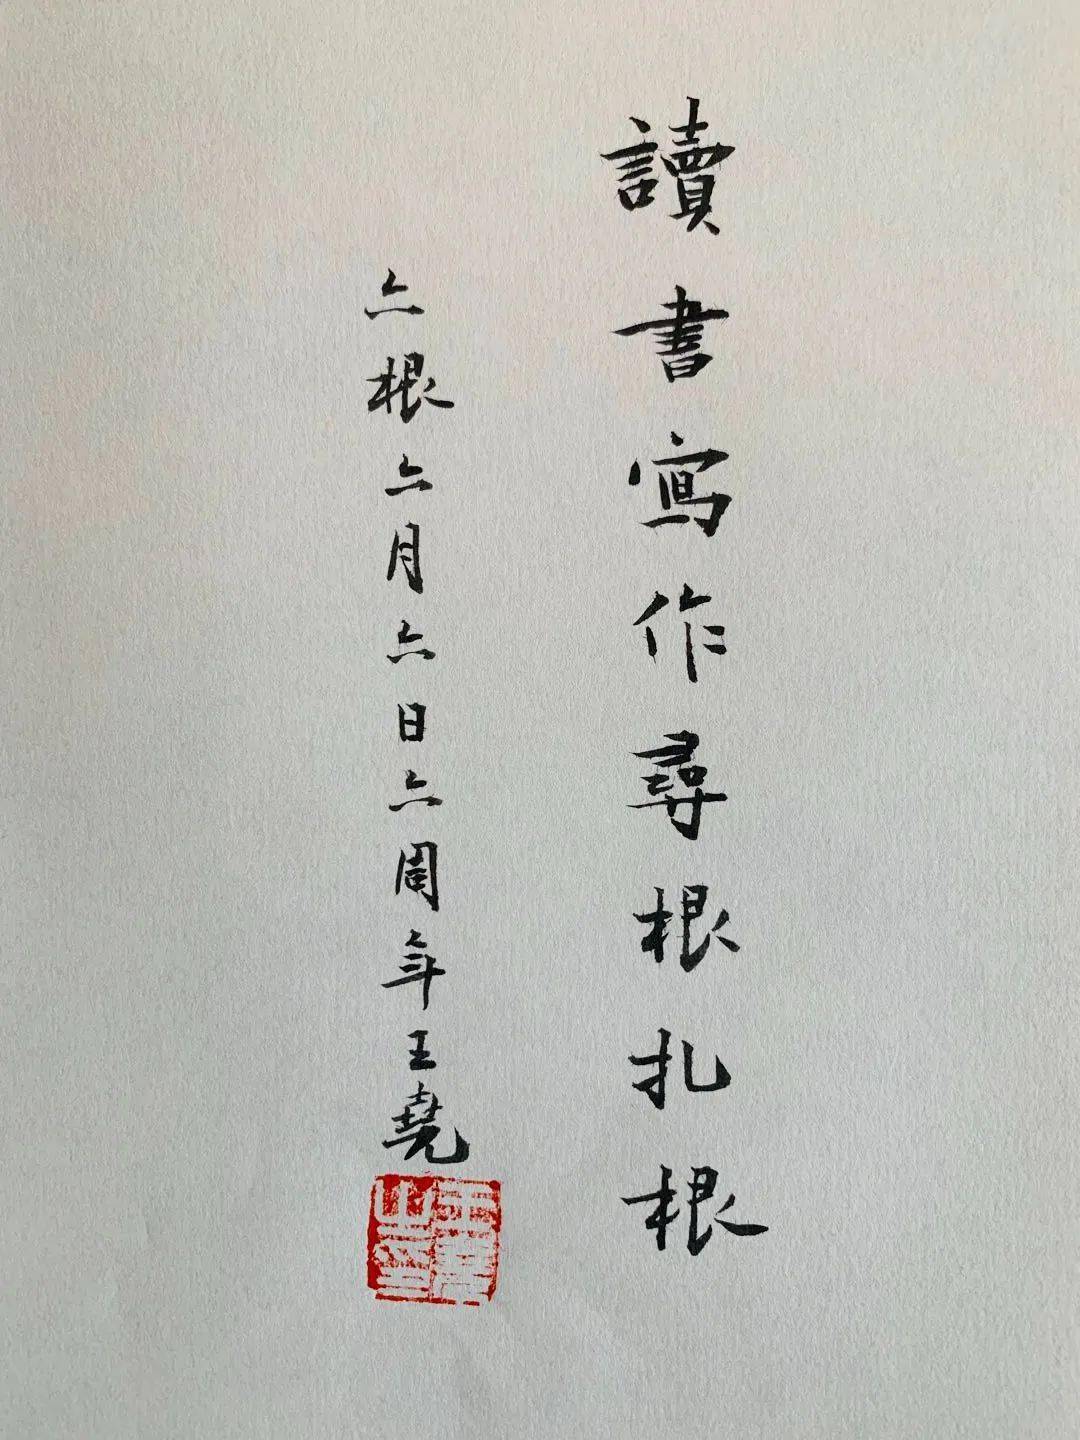 讀書寫作尋根扎根
六根六月六日六周年王堯
王堯之印